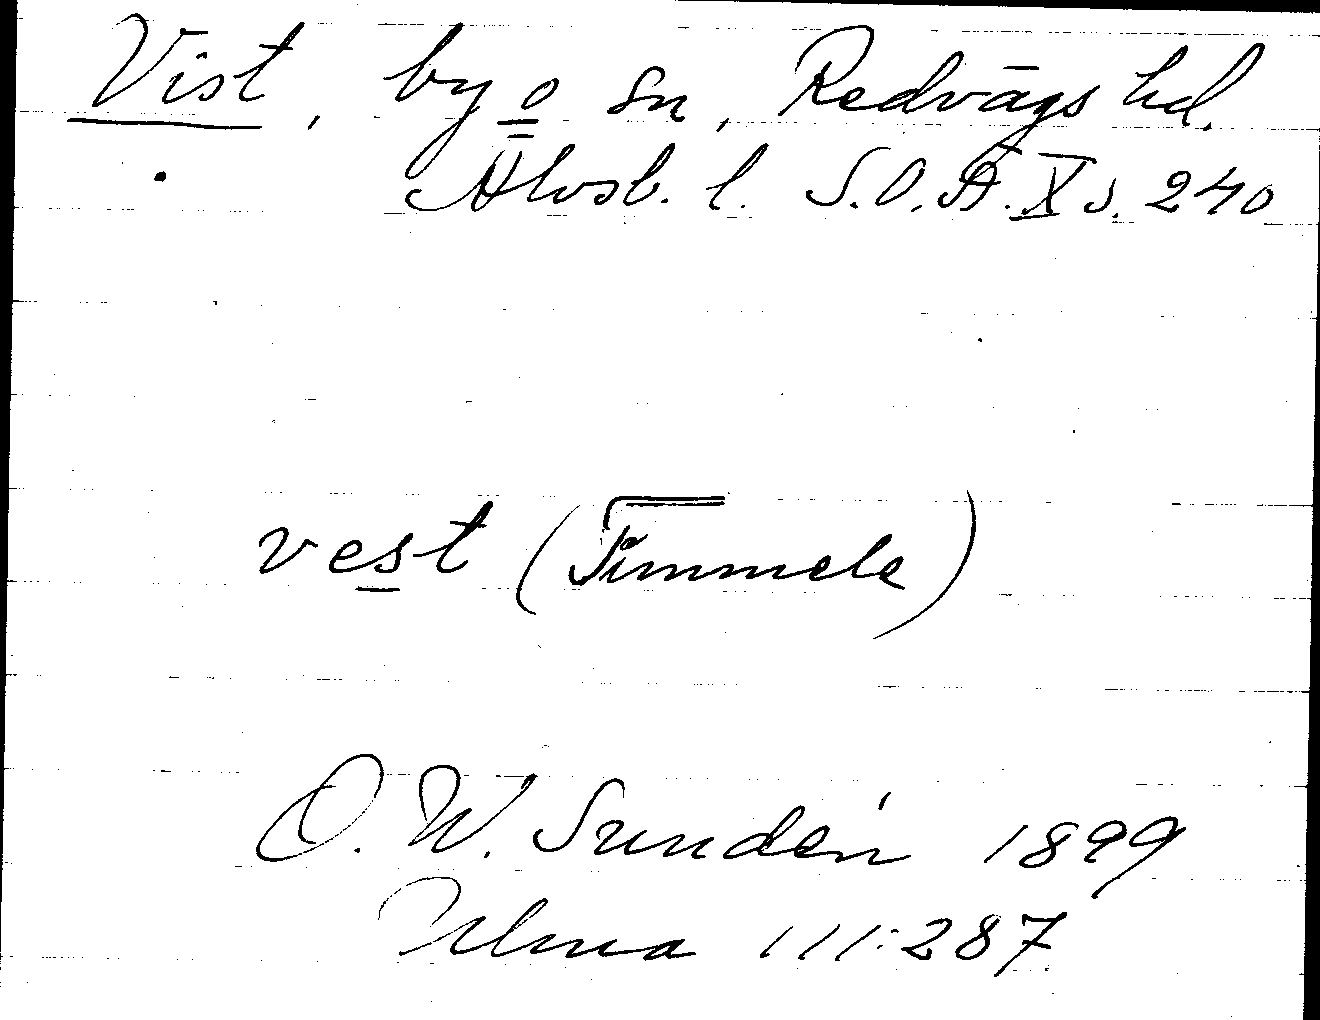 Vist, by o sn, Redvägs hd.
Älvsb. l. S.O.Ä. X s. 240
vest (Timmele)
O. W. Sundén 1899
Ulma 111:287